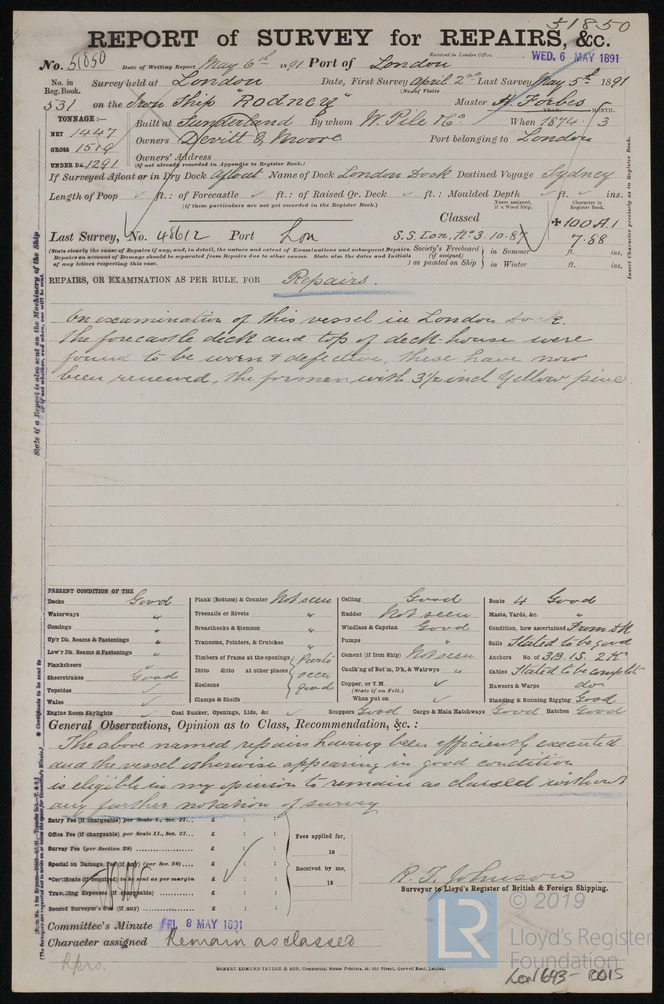 51850
REPORT of SURVEY for REPAIRS, &c.
Received in London Office,
No. 51850 Date of Writing Report May 6th 1891 Port of London WED. 6 MAY 1891
No. in Reg. Book. Survey held at London Date, First Survey April 2nd Last Survey May 5th 1891
(No. of Visits
531 on the Iron Ship "Rodney" Master A Forbes
TONNAGE:— YEAR. MONTH.
NET 1447 Built at Sunderland By whom W. Pile & Co When 1874 3
GROSS 1519 Owners Devitt & Moore Port belonging to London
UNDER DK. 1291 Owners' Address
(if not already recorded in Appendix to Register Book.)
If Surveyed Afloat or in Dry Dock Afloat Name of Dock London Dock Destined Voyage Sydney
Length of Poop ft.: of Forecastle ft.: of Raised Qr. Deck ft.: Moulded Depth ft. ins.
(if these particulars are not yet recorded in the Register Book.)
Years assigned, if a Wood Ship. Character in Register Book.
Classed
Last Survey, No. 48612 Port Lon S.S. Lon. No. 3. 10.87 ✠ 100 A.1
7.88
(State clearly the cause of Repairs if any, and, in detail, the nature and extent of Examinations and subsequent Repairs.
Repairs on account of Damage should be separated from Repairs due to other causes. State also the dates and Initials
of any letters respecting this case.
Society's Freeboard (if assigned) as painted on Ship in Summer ft. ins.
in Winter ft. ins.
REPAIRS, OR EXAMINATION AS PER RULE, FOR Repairs.
On examination of this vessel in London Dock.
the forecastle deck and top of deck-house were
found to be worn & defective, these have now
been renewed, the former with 3½ inch Yellow pine
PRESENT CONDITION OF THE
Decks Good
Waterways "
Comings "
Up'r Dk. Beams & Fastenings "
Low'r Dk. Beams & Fastenings "
Planksheers "
Sheerstrakes Good
Topsides
Wales
Engine Room Skylights
Plank (Bottom) & Counter Not seen
Treenails or Rivets "
Breasthooks & Riemson "
Transoms, Pointers, & Crutches "
Timbers of Frame at the openings Parts
Ditto ditto at other places seen
Keelsons good
Clamps & Shelfs
Coal Bunker, Openings, Lids, &c
Ceiling Good
Rudder Not seen
Windlass & Capstan Good
Pumps "
Cement (if from Ship) Not seen
Caulk'ng of Bot'm, D'k, & Watrwys "
Copper, or Y.M.
(State if on Felt.)
When put on
Scuppers Good Cargo & Main Hatchways Good Hatches Good
Boats 4 Good
Masts, Yards, &c. "
Condition, how ascertained From Dk
Sails Stated to be good
Anchors No. of 3B. 1S. 2K
Cables Stated to be complete
Hawsers & Warps do
Standing & Running Rigging Good
General Observations, Opinion as to Class, Recommendation, &c. :
The above named repairs having been efficiently executed
and the vessel otherwise appearing in good condition
is eligible in my opinion to remain as classed without
any further notation of survey
Entry Fee (if chargeable) per Scale I., Sec. 27... £ : :
Office Fee (if chargeable) per Scale II., Sec. 27... £ : :
Survey Fee (per Section 28) £ : :
Special on Damage, Fee (if any) (per Sec. 28) £ : :
*Certificate (if required) to be sent as per margin £ : :
Travelling Expenses (if chargeable) £ : :
Second Surveyor's Fee (if any) £ : :
Fees applied for,
18
Received by me,
18
R. T. Johnson
Surveyor to Lloyd's Register of British & Foreign Shipping.
Committee's Minute FRI. 8 MAY 1891
Character assigned Remain as classed
Rprs.
ROBERT EDMUND TAYLOR & SON, Commercial Steam Printers, 19, Old Street, Goswell Road, London.
State if a Report is also sent on the Machinery of the Ship
Insert Character precisely as in Register Book.
© 2019
LR
Lloyd's Register
Foundation
LON 693-0015